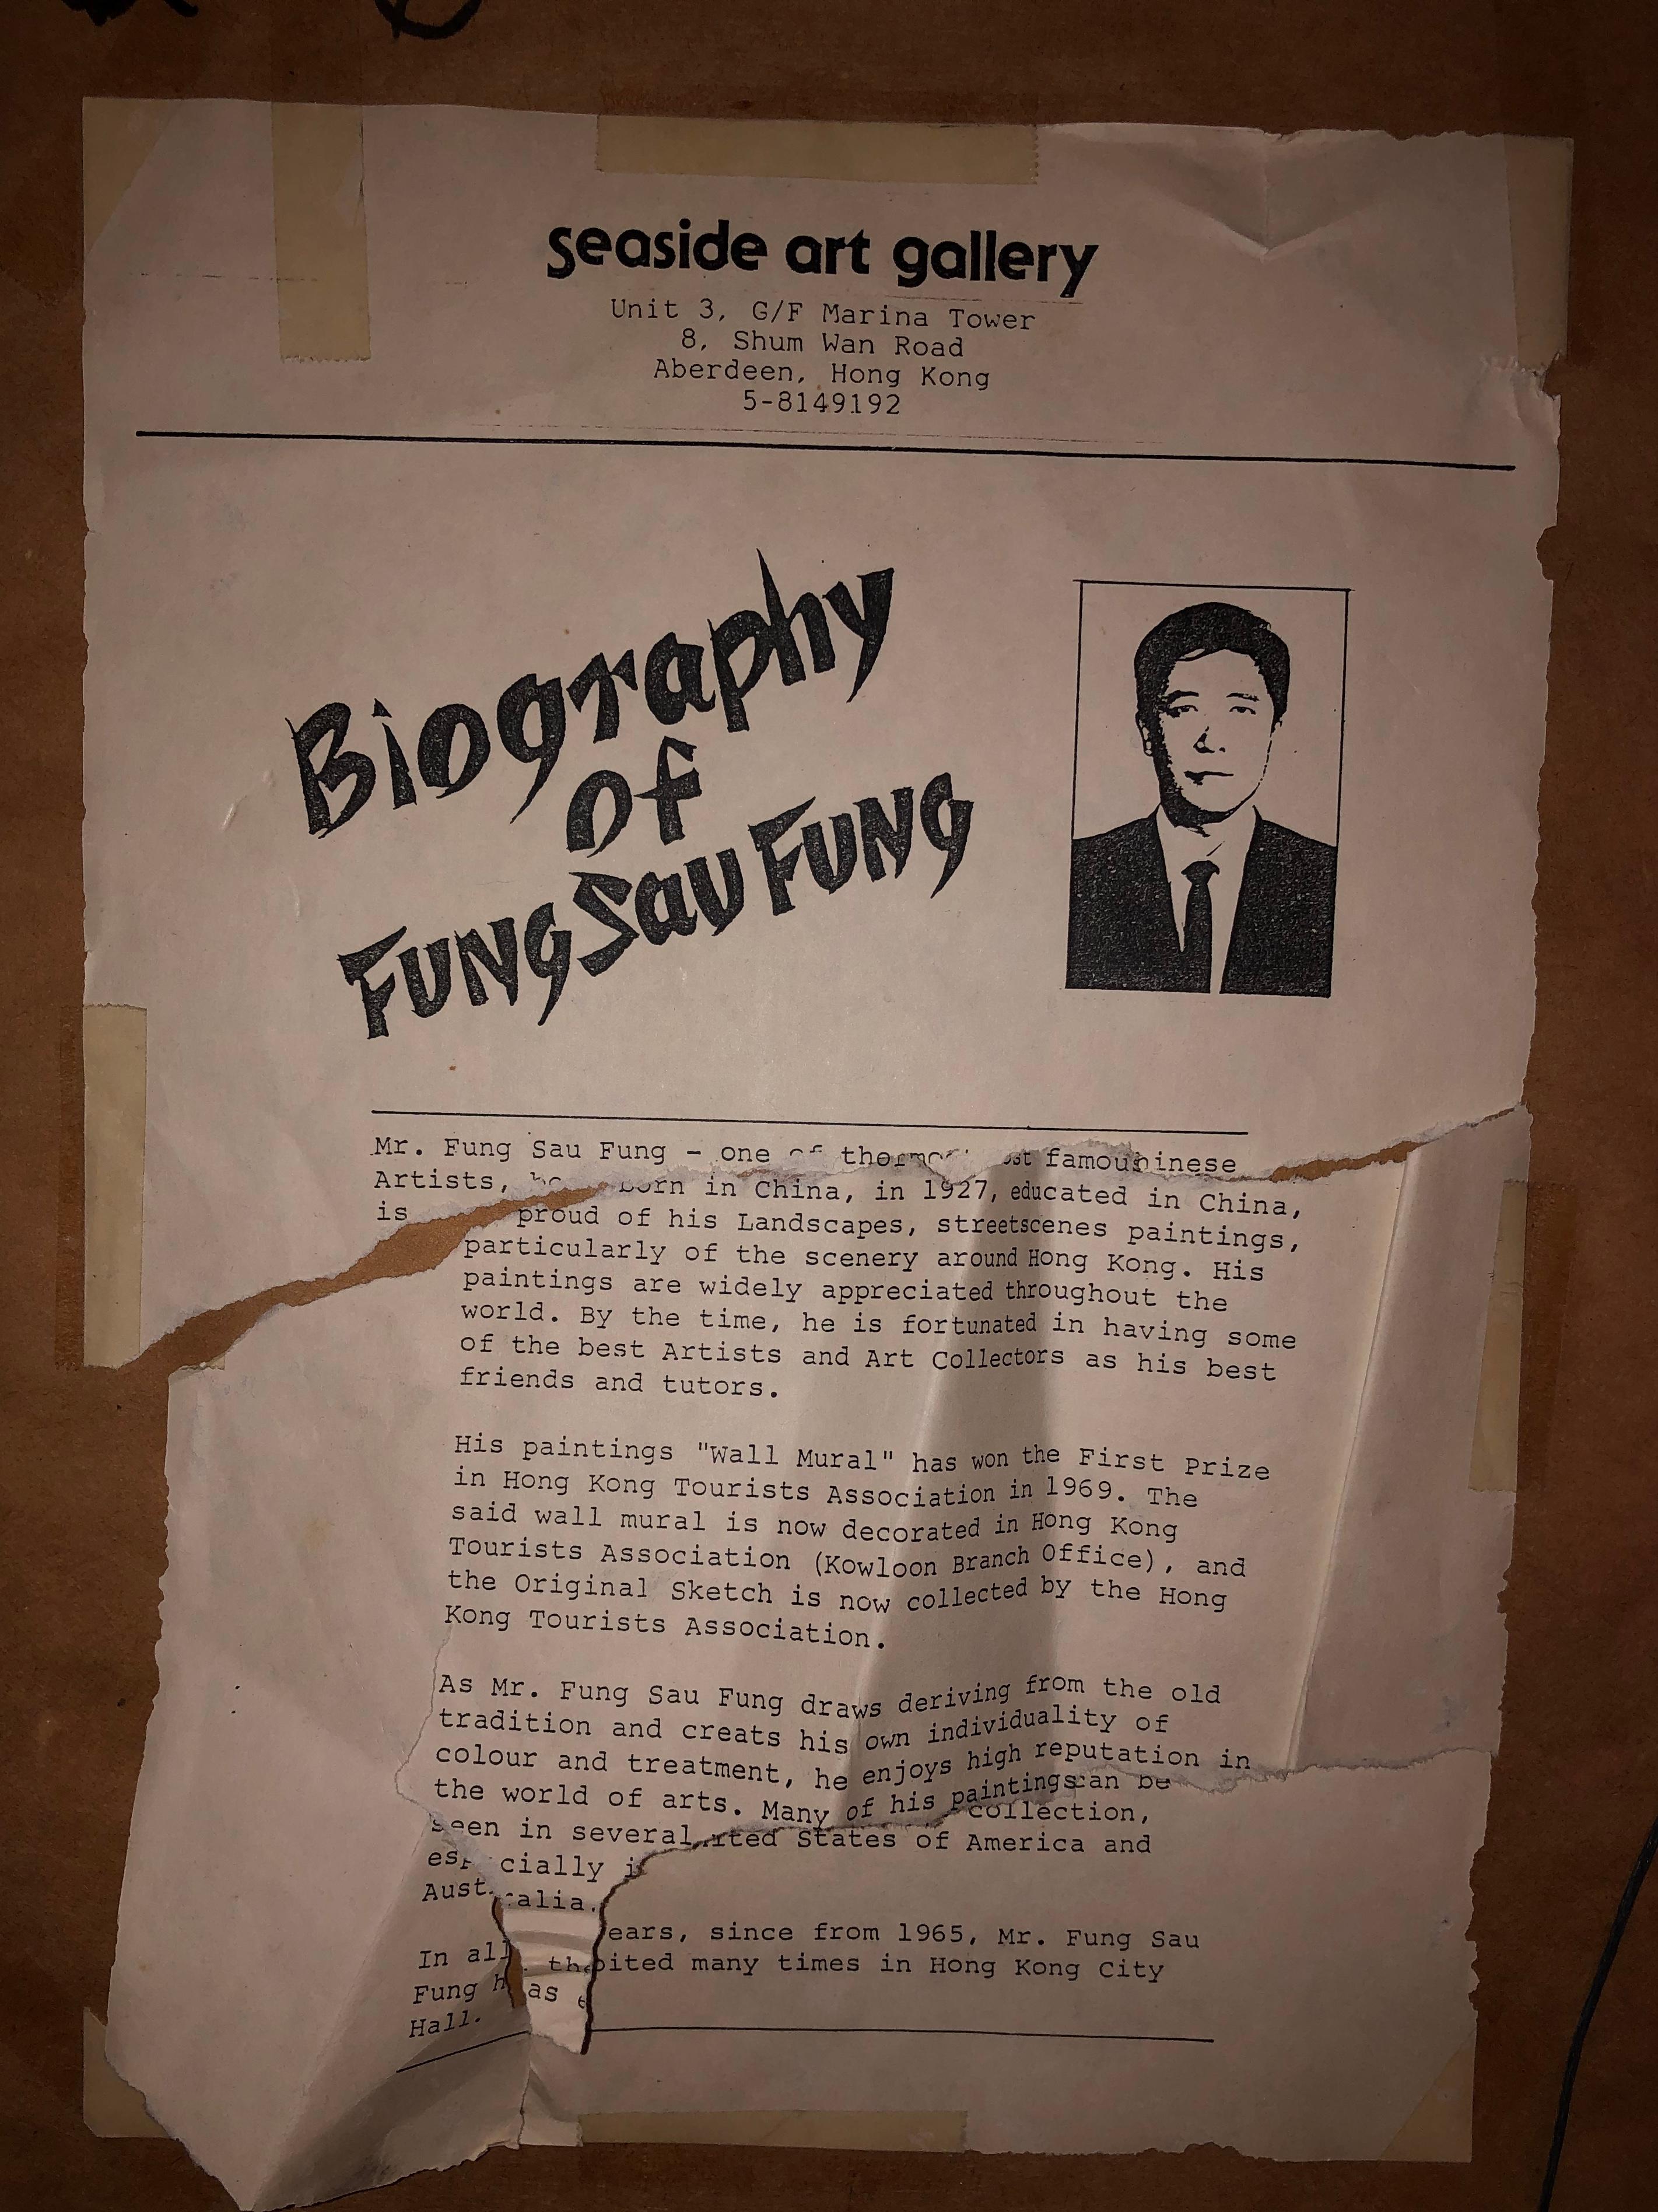 seaside art gallery
Unit 3, G/F Marina Tower
8, Shum Wan Road
Aberdeen, Hong Kong
5-8149192
Biography
of
FUNG Sau FUNG
Mr. Fung Sau Fung - one of the famou inese
Artists, born in China, in 1927, educated in China,
is proud of his Landscapes, streetscenes paintings,
particularly of the scenery around Hong Kong. His
paintings are widely appreciated throughout the
world. By the time, he is fortunated in having some
of the best Artists and Art Collectors as his best
friends and tutors.
His paintings "Wall Mural" has won the First Prize
in Hong Kong Tourists Association in 1969. The
said wall mural is now decorated in Hong Kong
Tourists Association (Kowloon Branch Office), and
the Original Sketch is now collected by the Hong
Kong Tourists Association.
As Mr. Fung Sau Fung draws deriving from the old
tradition and creats his own individuality of
colour and treatment, he enjoys high reputation in
the world of arts. Many of his paintings can be
seen in several collection,
especially i ited States of America and
Australia.
In all th ears, since from 1965, Mr. Fung Sau
Fung has e bited many times in Hong Kong City
Hall.